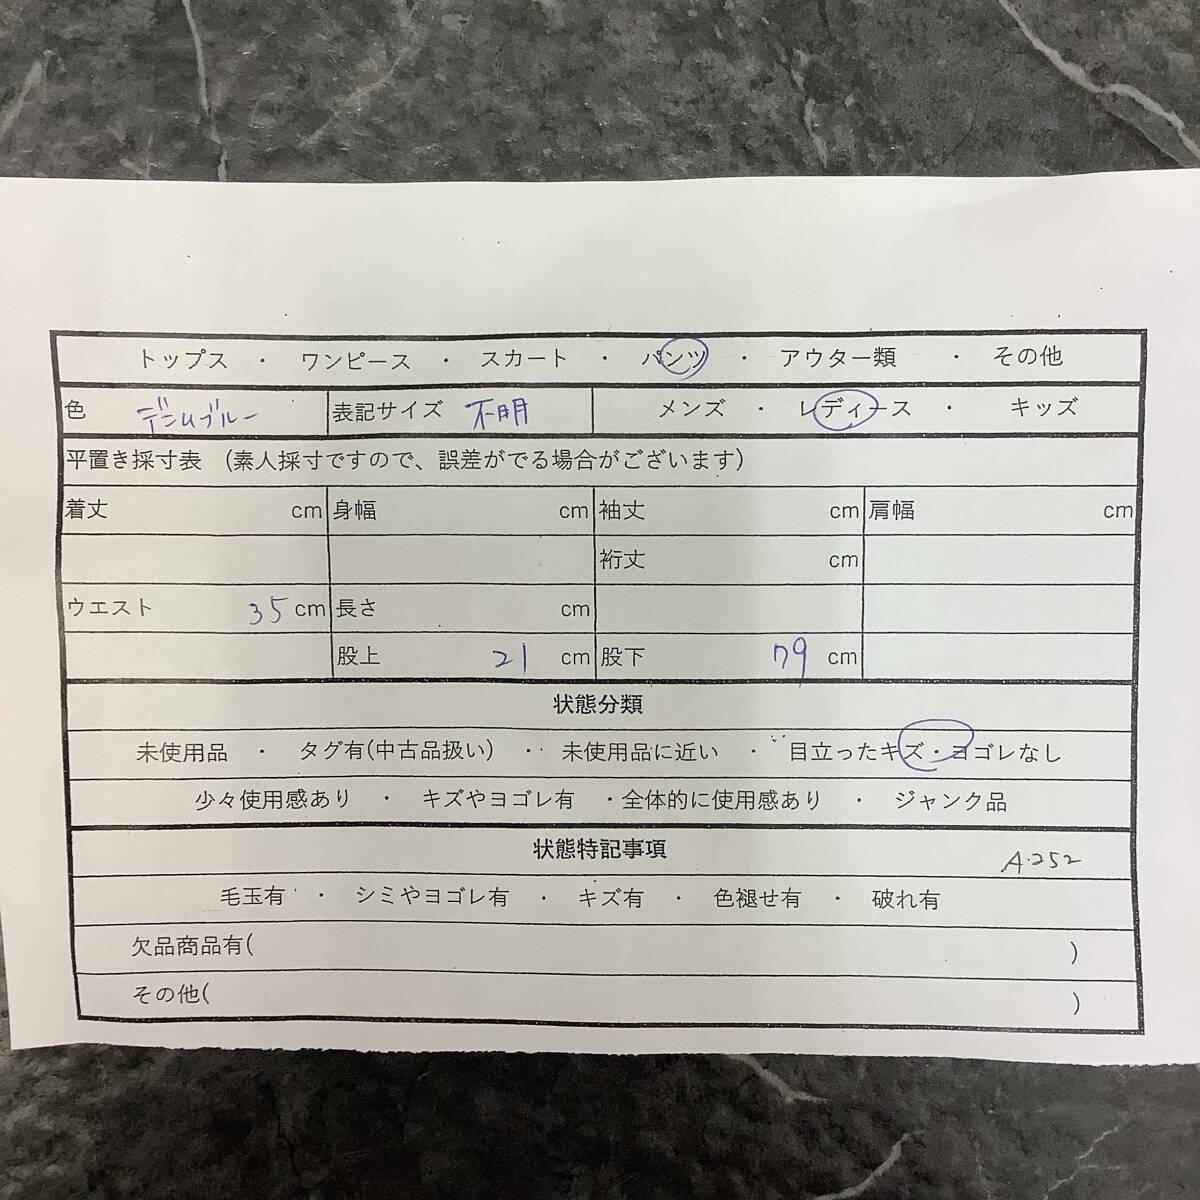 トップス ・ ワンピース ・ スカート ・ パンツ ・ アウター類 ・ その他
色 デニムブルー 表記サイズ 不明 メンズ ・ レディース ・ キッズ
平置き採寸表 (素人採寸ですので、誤差がでる場合がございます)
着丈 cm 身幅 cm 袖丈 cm 肩幅 cm
裄丈 cm
ウエスト 35 cm 長さ cm
股上 21 cm 股下 79 cm
状態分類
未使用品 ・ タグ有(中古品扱い) ・ 未使用品に近い ・ 目立ったキズ・ヨゴレなし
少々使用感あり ・ キズやヨゴレ有 ・全体的に使用感あり ・ ジャンク品
状態特記事項 A-252
毛玉有 ・ シミやヨゴレ有 ・ キズ有 ・ 色褪せ有 ・ 破れ有
欠品商品有( )
その他( )